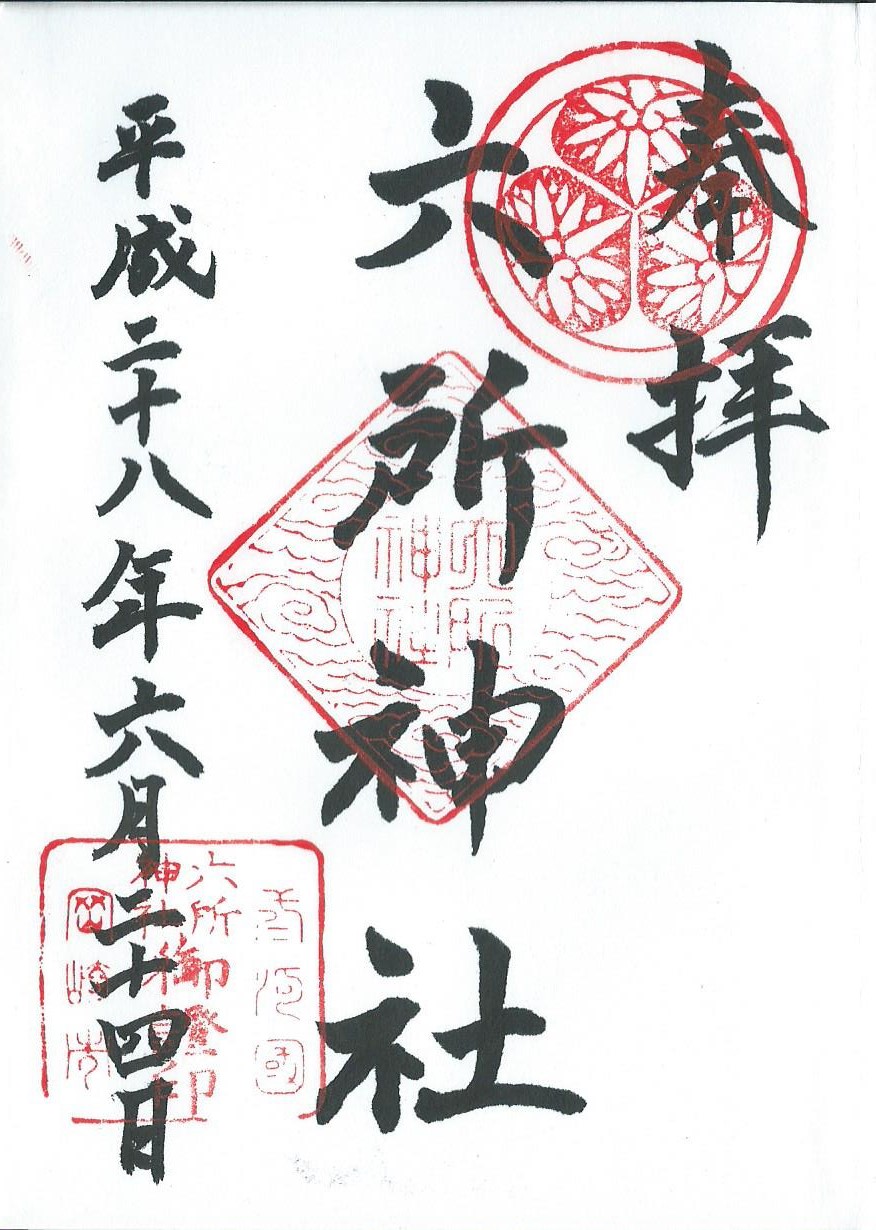 奉拝
六所神社
平成二十八年六月二十四日
六所
神社
参河國
六所
神社
岡崎市